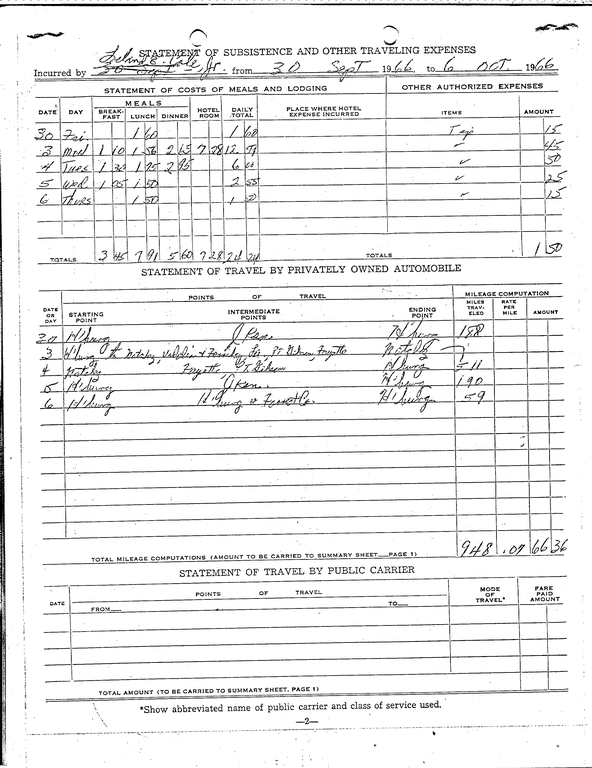 STATEMENT OF SUBSISTENCE AND OTHER TRAVELING EXPENSES
Incurred by Jr. from 30 Sept 1966 to 6 OCT. 1966
STATEMENT OF COSTS OF MEALS AND LODGING OTHER AUTHORIZED EXPENSES
DATE DAY MEALS BREAK-FAST LUNCH DINNER HOTEL ROOM DAILY TOTAL PLACE WHERE HOTEL EXPENSE INCURRED ITEMS AMOUNT
30 Fri 1 60 1 60 Tip 15
3 Mon 1 10 1 56 2 65 7 28 12 59 45
4 Tues 1 30 1 75 2 95 6 00 ✓ 50
5 Wed 1 05 1 50 2 55 ✓ 25
6 Thurs 1 50 1 50 ✓ 15
TOTALS 3 45 7 91 5 60 7 28 24 24 TOTALS 1 50
STATEMENT OF TRAVEL BY PRIVATELY OWNED AUTOMOBILE
DATE OR DAY POINTS OF TRAVEL MILEAGE COMPUTATION
STARTING POINT INTERMEDIATE POINTS ENDING POINT MILES TRAV-ELED RATE PER MILE AMOUNT
30 H'burg H'burg 188
3 H'burg
4 Fayette H'burg 511
5 H'burg H'burg 190
6 H'burg H'burg 59
TOTAL MILEAGE COMPUTATIONS (AMOUNT TO BE CARRIED TO SUMMARY SHEET PAGE 1) 948 .07 66 36
STATEMENT OF TRAVEL BY PUBLIC CARRIER
DATE POINTS OF TRAVEL MODE OF TRAVEL* FARE PAID AMOUNT
FROM TO
TOTAL AMOUNT (TO BE CARRIED TO SUMMARY SHEET, PAGE 1)
*Show abbreviated name of public carrier and class of service used.
—2—